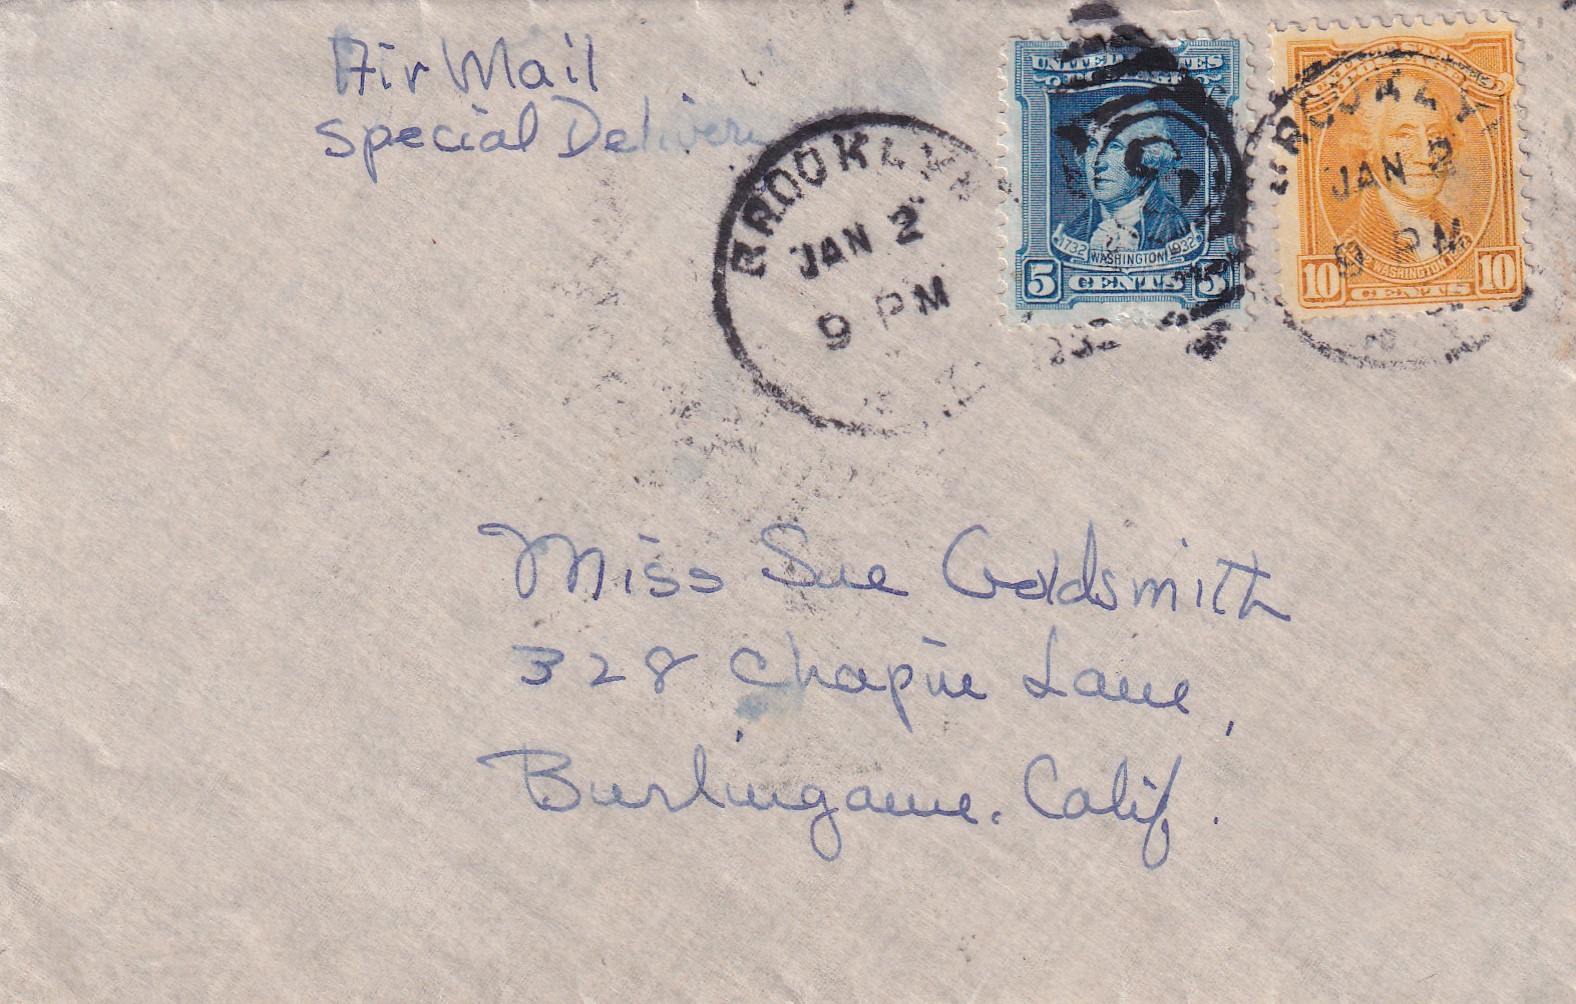 Air Mail
Special Delivery
BROOKLYN
JAN 2
9 PM
1932
UNITED STATES
1732 WASHINGTON 1932
5 CENTS 5
JAN 2
PM
WASHINGTON
10 CENTS 10
Miss Sue Goldsmith
328 Chapin Lane,
Burlingame. Calif.